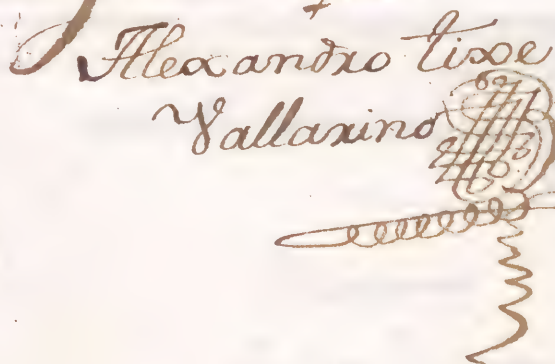 Alexandro tixe
Vallarino